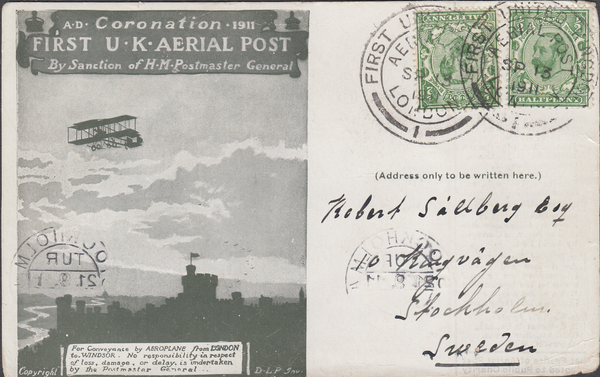 A·D· Coronation ·1911·
FIRST U·K·AERIAL POST
By Sanction of H·M·Postmaster General
For Conveyance by AEROPLANE from LONDON
to WINDSOR. No responsibility in respect
of loss, damage, or delay, is undertaken
by the Postmaster General
Copyright
FIRST U
AERIAL POST
SP 13
1911
LONDON
1
HALFPENNY
(Address only to be written here.)
Robert Sällberg Esq
Stockholm
Sweden